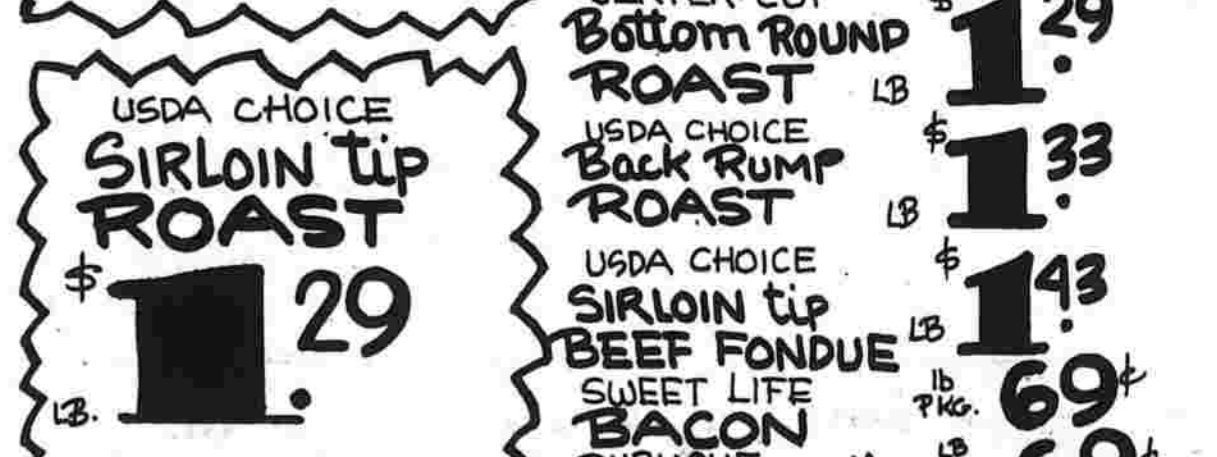 USDA CHOICE
SIRLOIN tip
ROAST
$1.29
LB.
CENTER CUT
Bottom ROUND
ROAST LB $1.29
USDA CHOICE
Back RUMP
ROAST LB $1.33
USDA CHOICE
SIRLOIN tip
BEEF FONDUE LB $1.43
SWEET LIFE
BACON lb PKG. 69¢
LB 69¢